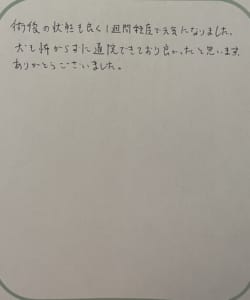 術後の状態も良く1週間程度で元気になりました。
犬も怖がらずに通院できており良かったと思います。
ありがとうございました。